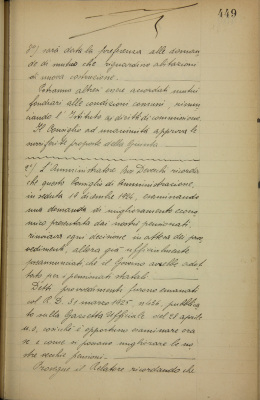 449
8°) sarà data la preferenza alle doman-
de di mutuo che riguardino abitazioni
di nuova costruzione.
Potranno altresì essere accordati mutui
fondiari alle condizioni comuni, rinun-
ciando l'Istituto ai diritti di commissione.
Il Consiglio ad unanimità approva le
suriferite proposte della Giunta.
9°) L'Amministratore Cav. ricorda
che questo Consiglio di Amministrazione,
in seduta 18 dicembre 1924, esaminando
una domanda di miglioramento econo-
mico presentata dai nostri pensionati,
rinviava ogni decisione, in attesa dei prov-
vedimenti, allora già ufficialmente
preannunciati che il Governo avrebbe adot-
tato per i pensionati statali.
Detti provvedimenti furono emanati
col R. D. 31 marzo 1925 n° 486, pubblica-
to sulla Gazzetta Ufficiale del 28 aprile
u.s., cosicchè è opportuno esaminare ora
se e come si possano migliorare le no-
stre vecchie pensioni.
Prosegue il Relatore ricordando che